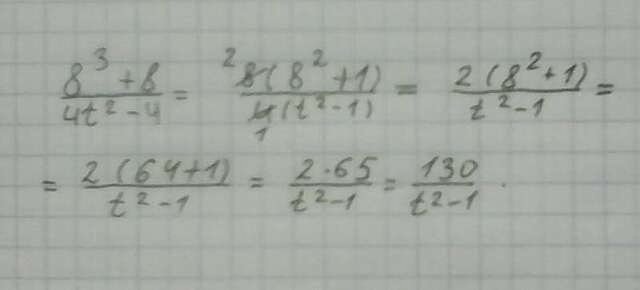 (8³+8)/(4t²-4) = ²8(8²+1)/4(t²-1)₁ = 2(8²+1)/(t²-1) =
= 2(64+1)/(t²-1) = 2·65/(t²-1) = 130/(t²-1).